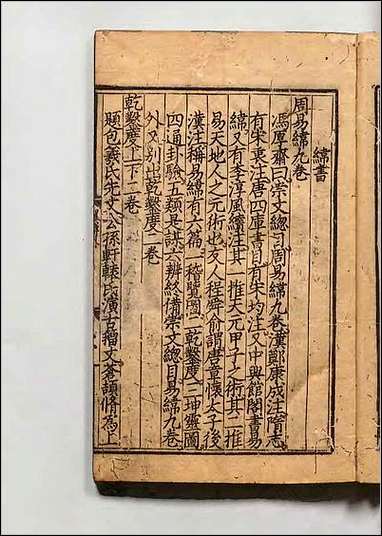 緯書
周易緯九卷
馮厚齋曰崇文總目周易緯九卷漢鄭康成注隋志
有宋衷注唐四庫書目有宋均注又中興館閣書易
緯又有李淳風續注其一推天元甲子之術其二推
易天地人之元術也友人程 俞謂唐章懷太子後
漢注稱易緯有六僞一稽覽圖二乾鑿度三坤靈圖
四通卦驗五類是謀六辨終備崇文總目易緯九卷
外又别出乾鑿度二卷
乾鑿度上下二卷
題包羲氏先文公孫軒轅氏演古籀文蒼頡脩爲上